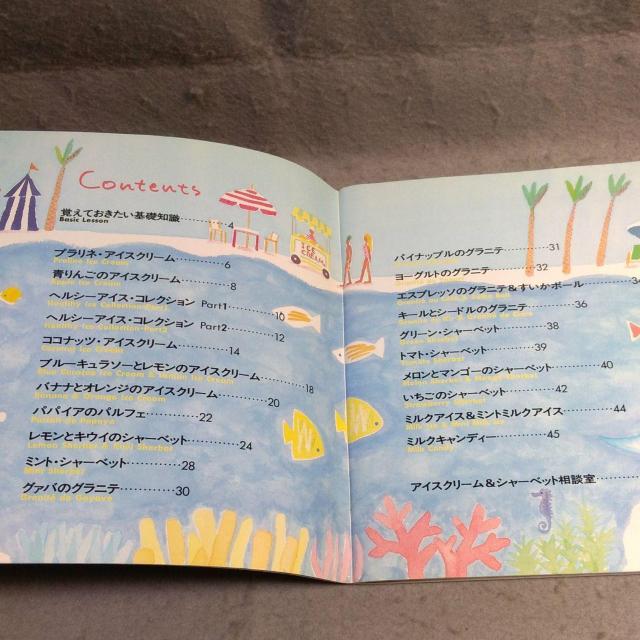 Contents
覚えておきたい基礎知識…………4
Basic Lesson
プラリネ・アイスクリーム…………6
Praline Ice Cream
青りんごのアイスクリーム…………8
Apple Ice Cream
ヘルシーアイス・コレクション Part1…………10
Healthy Ice Collection-Part1
ヘルシーアイス・コレクション Part2…………12
Healthy Ice Collection-Part2
ココナッツ・アイスクリーム…………14
Coconut Ice Cream
ブルーキュラソーとレモンのアイスクリーム…………18
Blue Curatao Ice Cream & Lemon Ice Cream
バナナとオレンジのアイスクリーム…………20
Banana & Orange Ice Cream
パパイアのパルフェ…………22
Parfait de Papaya
レモンとキウイのシャーベット…………24
Lemon Sherbet & Kiwi Sherbet
ミント・シャーベット…………28
Mint Sherbet
グァバのグラニテ…………30
Granité de Goyave
ICE CREAM
パイナップルのグラニテ…………31
ヨーグルトのグラニテ…………32
エスプレッソのグラニテ&すいかボール…………34
キールとシードルのグラニテ…………36
グリーン・シャーベット…………38
Green Sherbet
トマト・シャーベット…………39
Tomato Sherbet
メロンとマンゴーのシャーベット…………40
Melon Sherbet & Mango Sherbet
いちごのシャーベット…………42
Strawberry Sherbet
ミルクアイス&ミントミルクアイス…………44
Milk Ice & Mint Milk Ice
ミルクキャンディー…………45
Milk Candy
アイスクリーム&シャーベット相談室…………